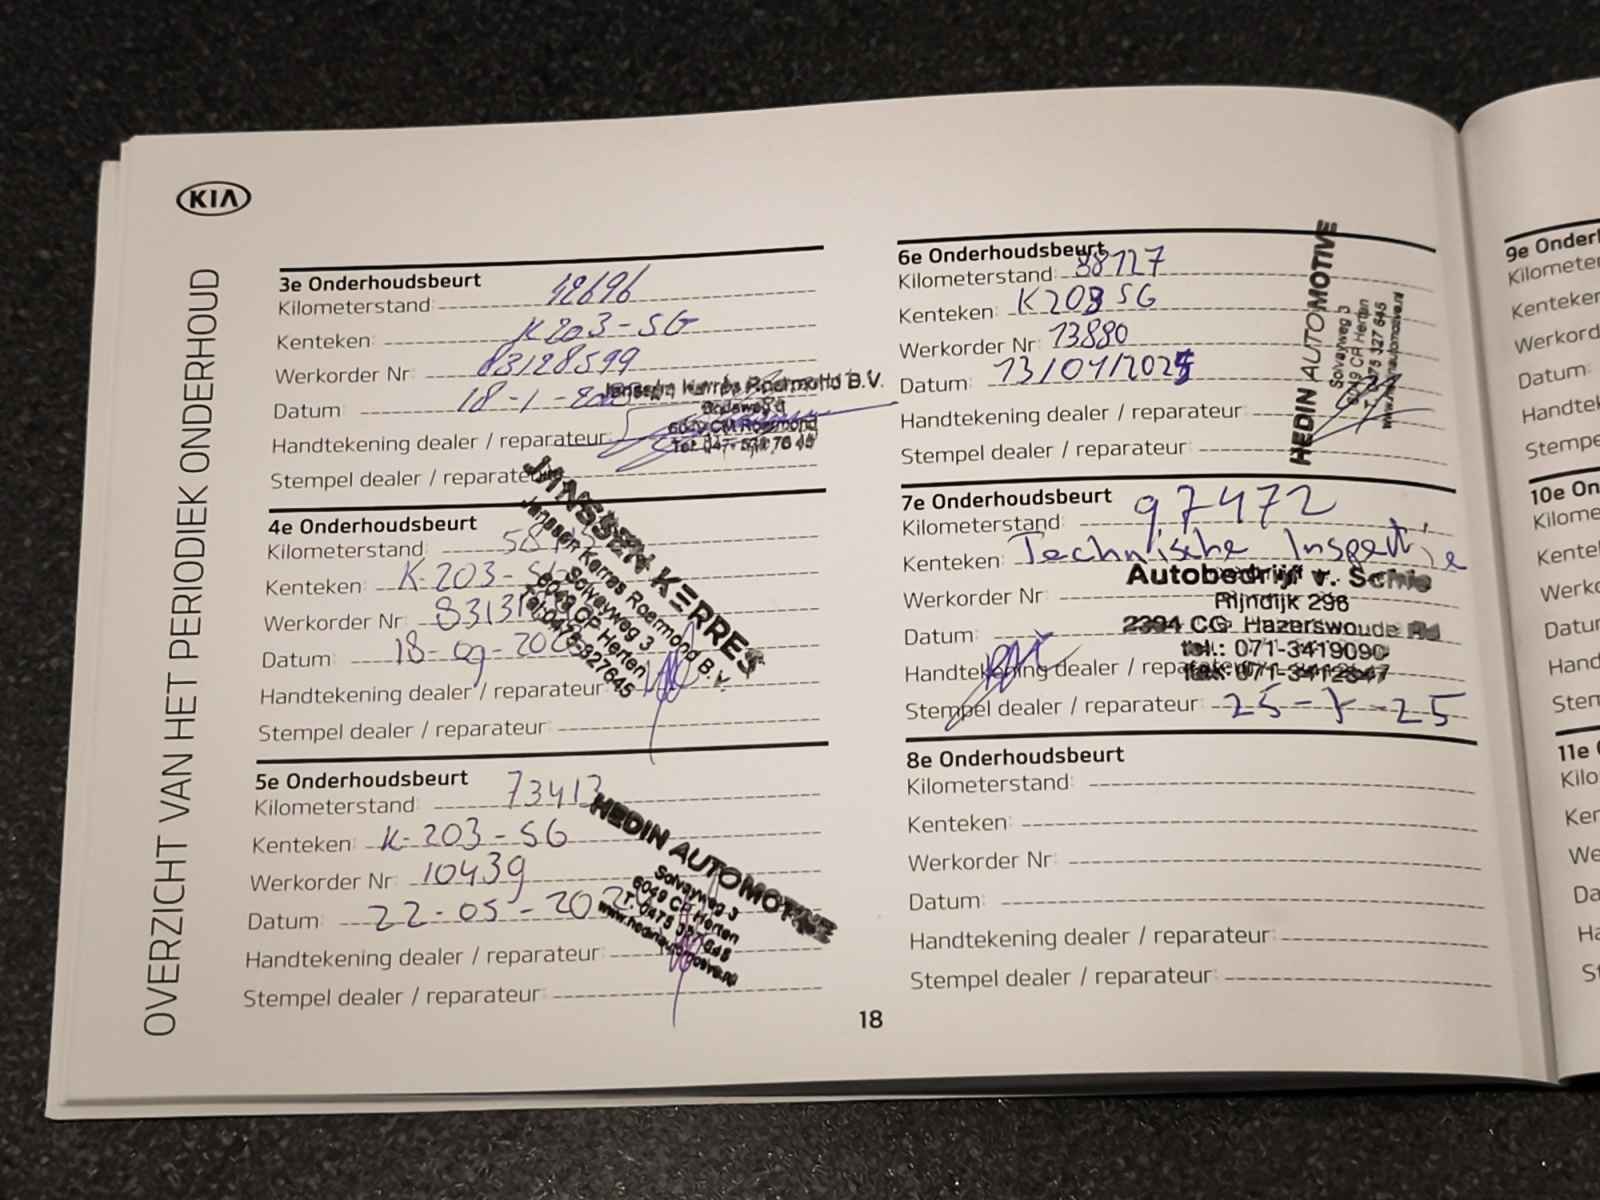 KIA
OVERZICHT VAN HET PERIODIEK ONDERHOUD
3e Onderhoudsbeurt
Kilometerstand: 42696
Kenteken: K203-SG
Werkorder Nr: 83128599
Datum: 18-1-
Handtekening dealer / reparateur:
Stempel dealer / reparateur:
Janssen Kerres Roermond B.V.
6049 CM Roermond
4e Onderhoudsbeurt
Kilometerstand:
Kenteken: K-203-SG
Werkorder Nr:
Datum: 18-09-202
Handtekening dealer / reparateur:
Stempel dealer / reparateur:
JANSSEN KERRES
Janssen Kerres Roermond B.V.
Solvayweg 3
6049 CP Herten
Tel:0475-327645
5e Onderhoudsbeurt
Kilometerstand: 73413
Kenteken: K-203-SG
Werkorder Nr: 10439
Datum: 22-05-202
Handtekening dealer / reparateur:
Stempel dealer / reparateur:
HEDIN AUTOMOTIVE
Solvayweg 3
6049 CP Herten
T. 0475 327 645
www.hedinautomotive.nl
6e Onderhoudsbeurt
Kilometerstand: 88127
Kenteken: K203SG
Werkorder Nr: 13880
Datum: 13/01/2025
Handtekening dealer / reparateur:
Stempel dealer / reparateur:
HEDIN AUTOMOTIVE
Solvayweg 3
6049 CP Herten
T. 0475 327 645
www.hedinautomotive.nl
7e Onderhoudsbeurt
Kilometerstand: 97472
Kenteken: Technische Inspectie
Werkorder Nr:
Datum:
Handtekening dealer / reparateur:
Stempel dealer / reparateur: 25-7-25
Autobedrijf v. Schie
Rijndijk 296
2394 CG Hazerswoude Rd
tel.: 071-3419090
fax: 071-3412847
8e Onderhoudsbeurt
Kilometerstand:
Kenteken:
Werkorder Nr:
Datum:
Handtekening dealer / reparateur:
Stempel dealer / reparateur:
18
9e Onder
Kilomete
Kenteken
Werkord
Datum:
Handtek
Stempe
10e On
Kilome
Kente
Werko
Datu
Hand
Sten
11e O
Kilo
Ker
We
Da
Ha
St